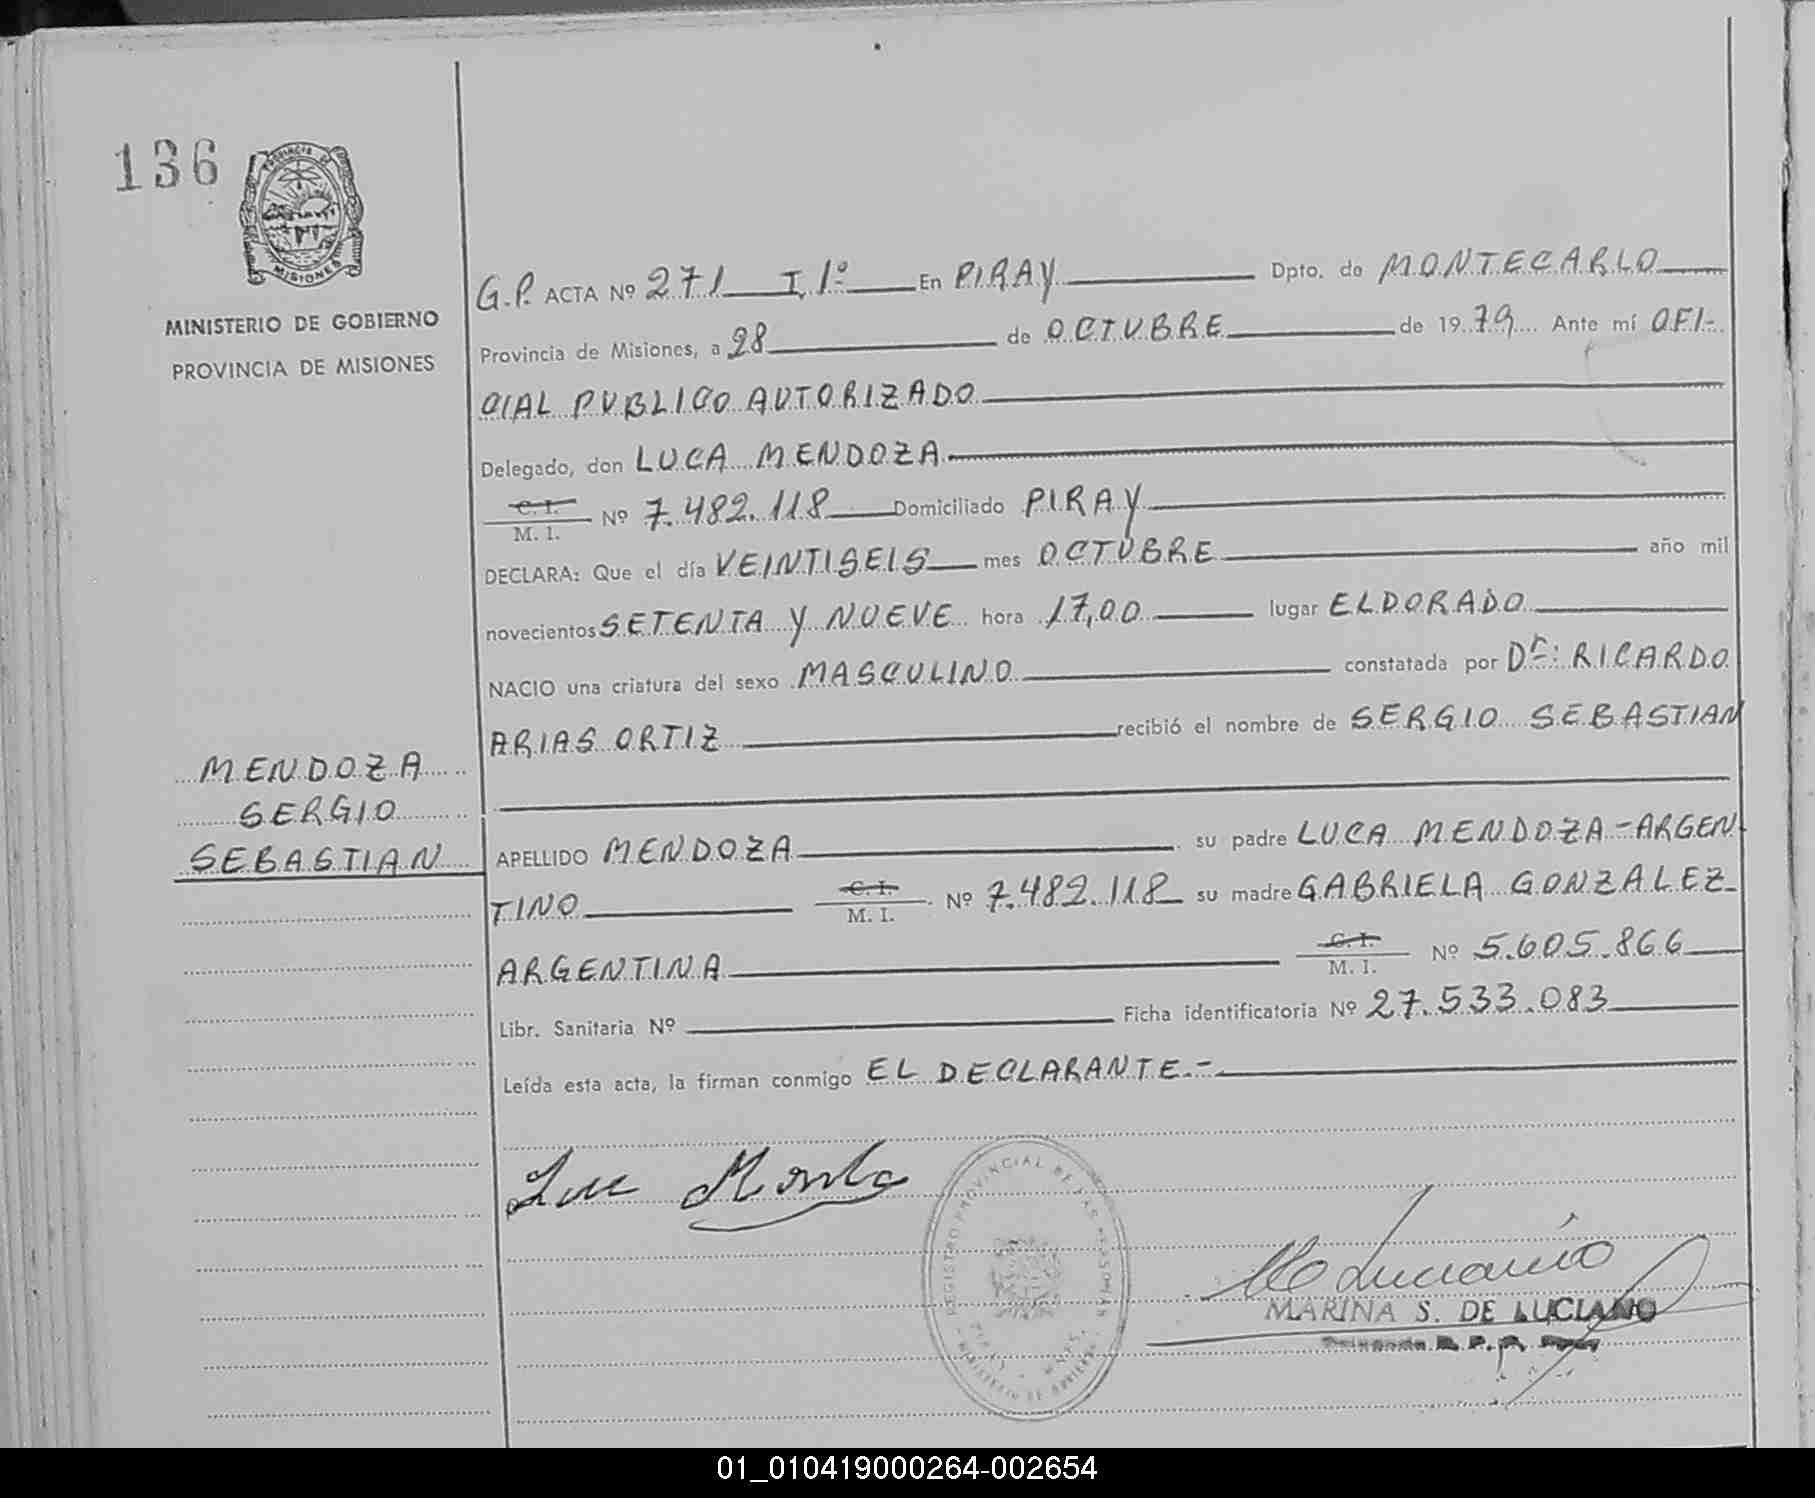 136
PROVINCIA DE
MISIONES
MINISTERIO DE GOBIERNO
PROVINCIA DE MISIONES
G.P. ACTA Nº 271 T 1º En PIRAY Dpto. de MONTECARLO
Provincia de Misiones, a 28 de OCTUBRE de 1979 Ante mí OFI-
CIAL PUBLICO AUTORIZADO
Delegado, don LUCA MENDOZA
C. I.
M. I. Nº 7.482.118 Domiciliado PIRAY
DECLARA: Que el día VEINTISEIS mes OCTUBRE año mil
novecientos SETENTA Y NUEVE hora 17,00 lugar ELDORADO
NACIO una criatura del sexo MASCULINO constatada por Dr: RICARDO
ARIAS ORTIZ recibió el nombre de SERGIO SEBASTIAN
MENDOZA
SERGIO
SEBASTIAN
APELLIDO MENDOZA su padre LUCA MENDOZA-ARGEN
TINO C. I.
M. I. Nº 7.482.118 su madre GABRIELA GONZALEZ-
ARGENTINA C. I.
M. I. Nº 5.605.866
Libr. Sanitaria Nº Ficha identificatoria Nº 27.533.083
Leída esta acta, la firman conmigo EL DECLARANTE.-
REGISTRO PROVINCIAL DE LAS PERSONAS
MINISTERIO DE GOBIERNO
MARINA S. DE LUCIANO
01_010419000264-002654